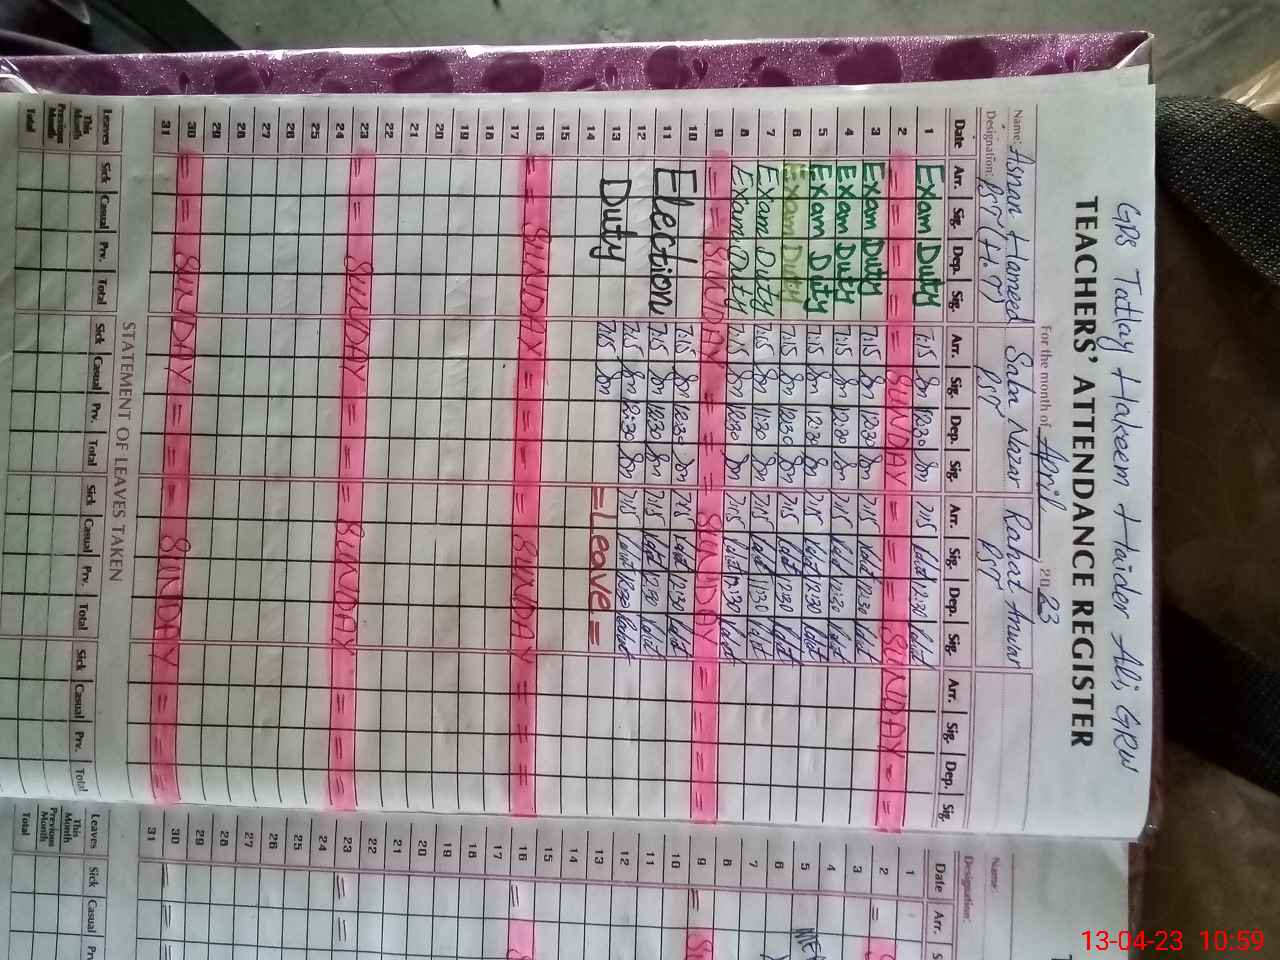 GPS Tatlay Hakeem Haider Ali, GRW
TEACHERS' ATTENDANCE REGISTER
For the month of April 2023
Name: Asnan Hameed Saba Nazar Rahat Anwar
Designation: PST (H.T) PST PST
Date Arr. Sig. Dep. Sig. Arr. Sig. Dep. Sig. Arr. Sig. Dep. Sig. Arr. Sig. Dep. Sig.
1 Exam Duty 7:15 12:30 7:15 12:30
2 = = = = SUNDAY = = = SUNDAY = =
3 Exam Duty 7:15 12:30 7:15 12:30
4 Exam Duty 7:15 12:30 7:15 12:30
5 Exam Duty 7:15 12:30 7:15 12:30
6 Exam Duty 7:15 12:30 7:15 12:30
7 Exam Duty 7:15 11:30 7:15 11:30
8 Exam Duty 7:15 12:30 7:15 12:30
9 = = SUNDAY = = = SUNDAY = = = =
10 7:15 12:30 7:15 12:30
11 Election 7:15 12:30 7:15 12:30
12 7:15 12:30 7:15 12:30
13 Duty 7:15 = Leave =
14
15
16 = = SUNDAY = = = = SUNDAY = = =
17
18
19
20
21
22
23 = = SUNDAY = = = SUNDAY = = =
24
25
26
27
28
29
30 = = SUNDAY = = = SUNDAY = = = =
31
STATEMENT OF LEAVES TAKEN
Leaves Sick Casual Prv. Total Sick Casual Prv. Total Sick Casual Prv. Total Sick Casual Prv. Total
This Month
Previous Month
Total
Name:
Designation:
Date Arr.
1
2 =
3
4
5
6
7
8
9 =
10
11
12
13
14
15
16 =
17
18
19
20
21
22
23 = =
24
25
26
27
28
29
30 = =
31
Leaves Sick Casual
This Month
Previous Month
Total
13-04-23 10:59